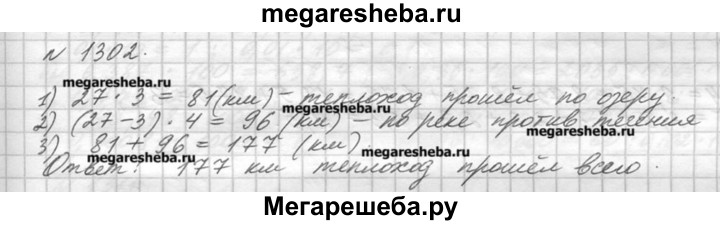 megaresheba.ru
№ 1302.
megaresheba.ru
1) 27 · 3 = 81 (км) – теплоход прошёл по озеру.
megaresheba.ru
2) (27 – 3) · 4 = 96 (км) – по реке против течения
3) 81 + 96 = 177 (км)
megaresheba.ru
megaresheba.ru
Ответ: 177 км теплоход прошёл всего.
Мегарешеба.ру